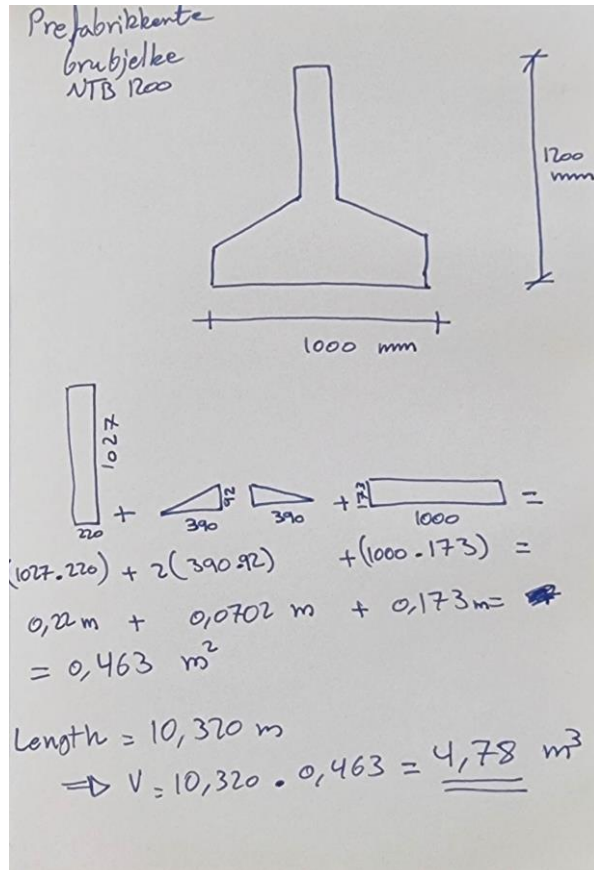 Prefabrikkerte
brubjelke
NTB 1200
1200
mm
1000 mm
1027
220
+
390
92
390
+
173
1000
=
(1027.220) + 2(390.92) +(1000.173) =
0,22 m + 0,0702 m + 0,173 m =
= 0,463 m²
Length = 10,320 m
⇒ V = 10,320 . 0,463 = 4,78 m³